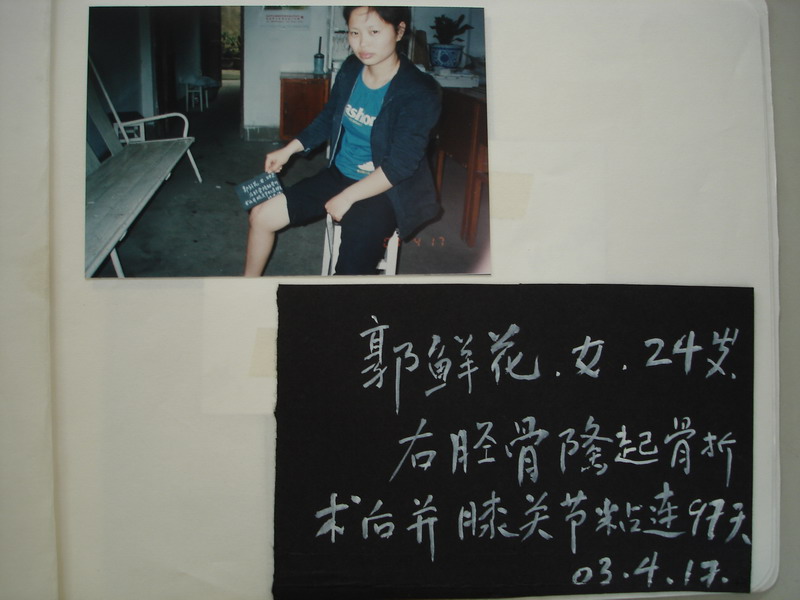 ashor
03 4 17
郭鲜花.女.24岁.
右胫骨隆起骨折
术后并膝关节粘连97天
03.4.17.